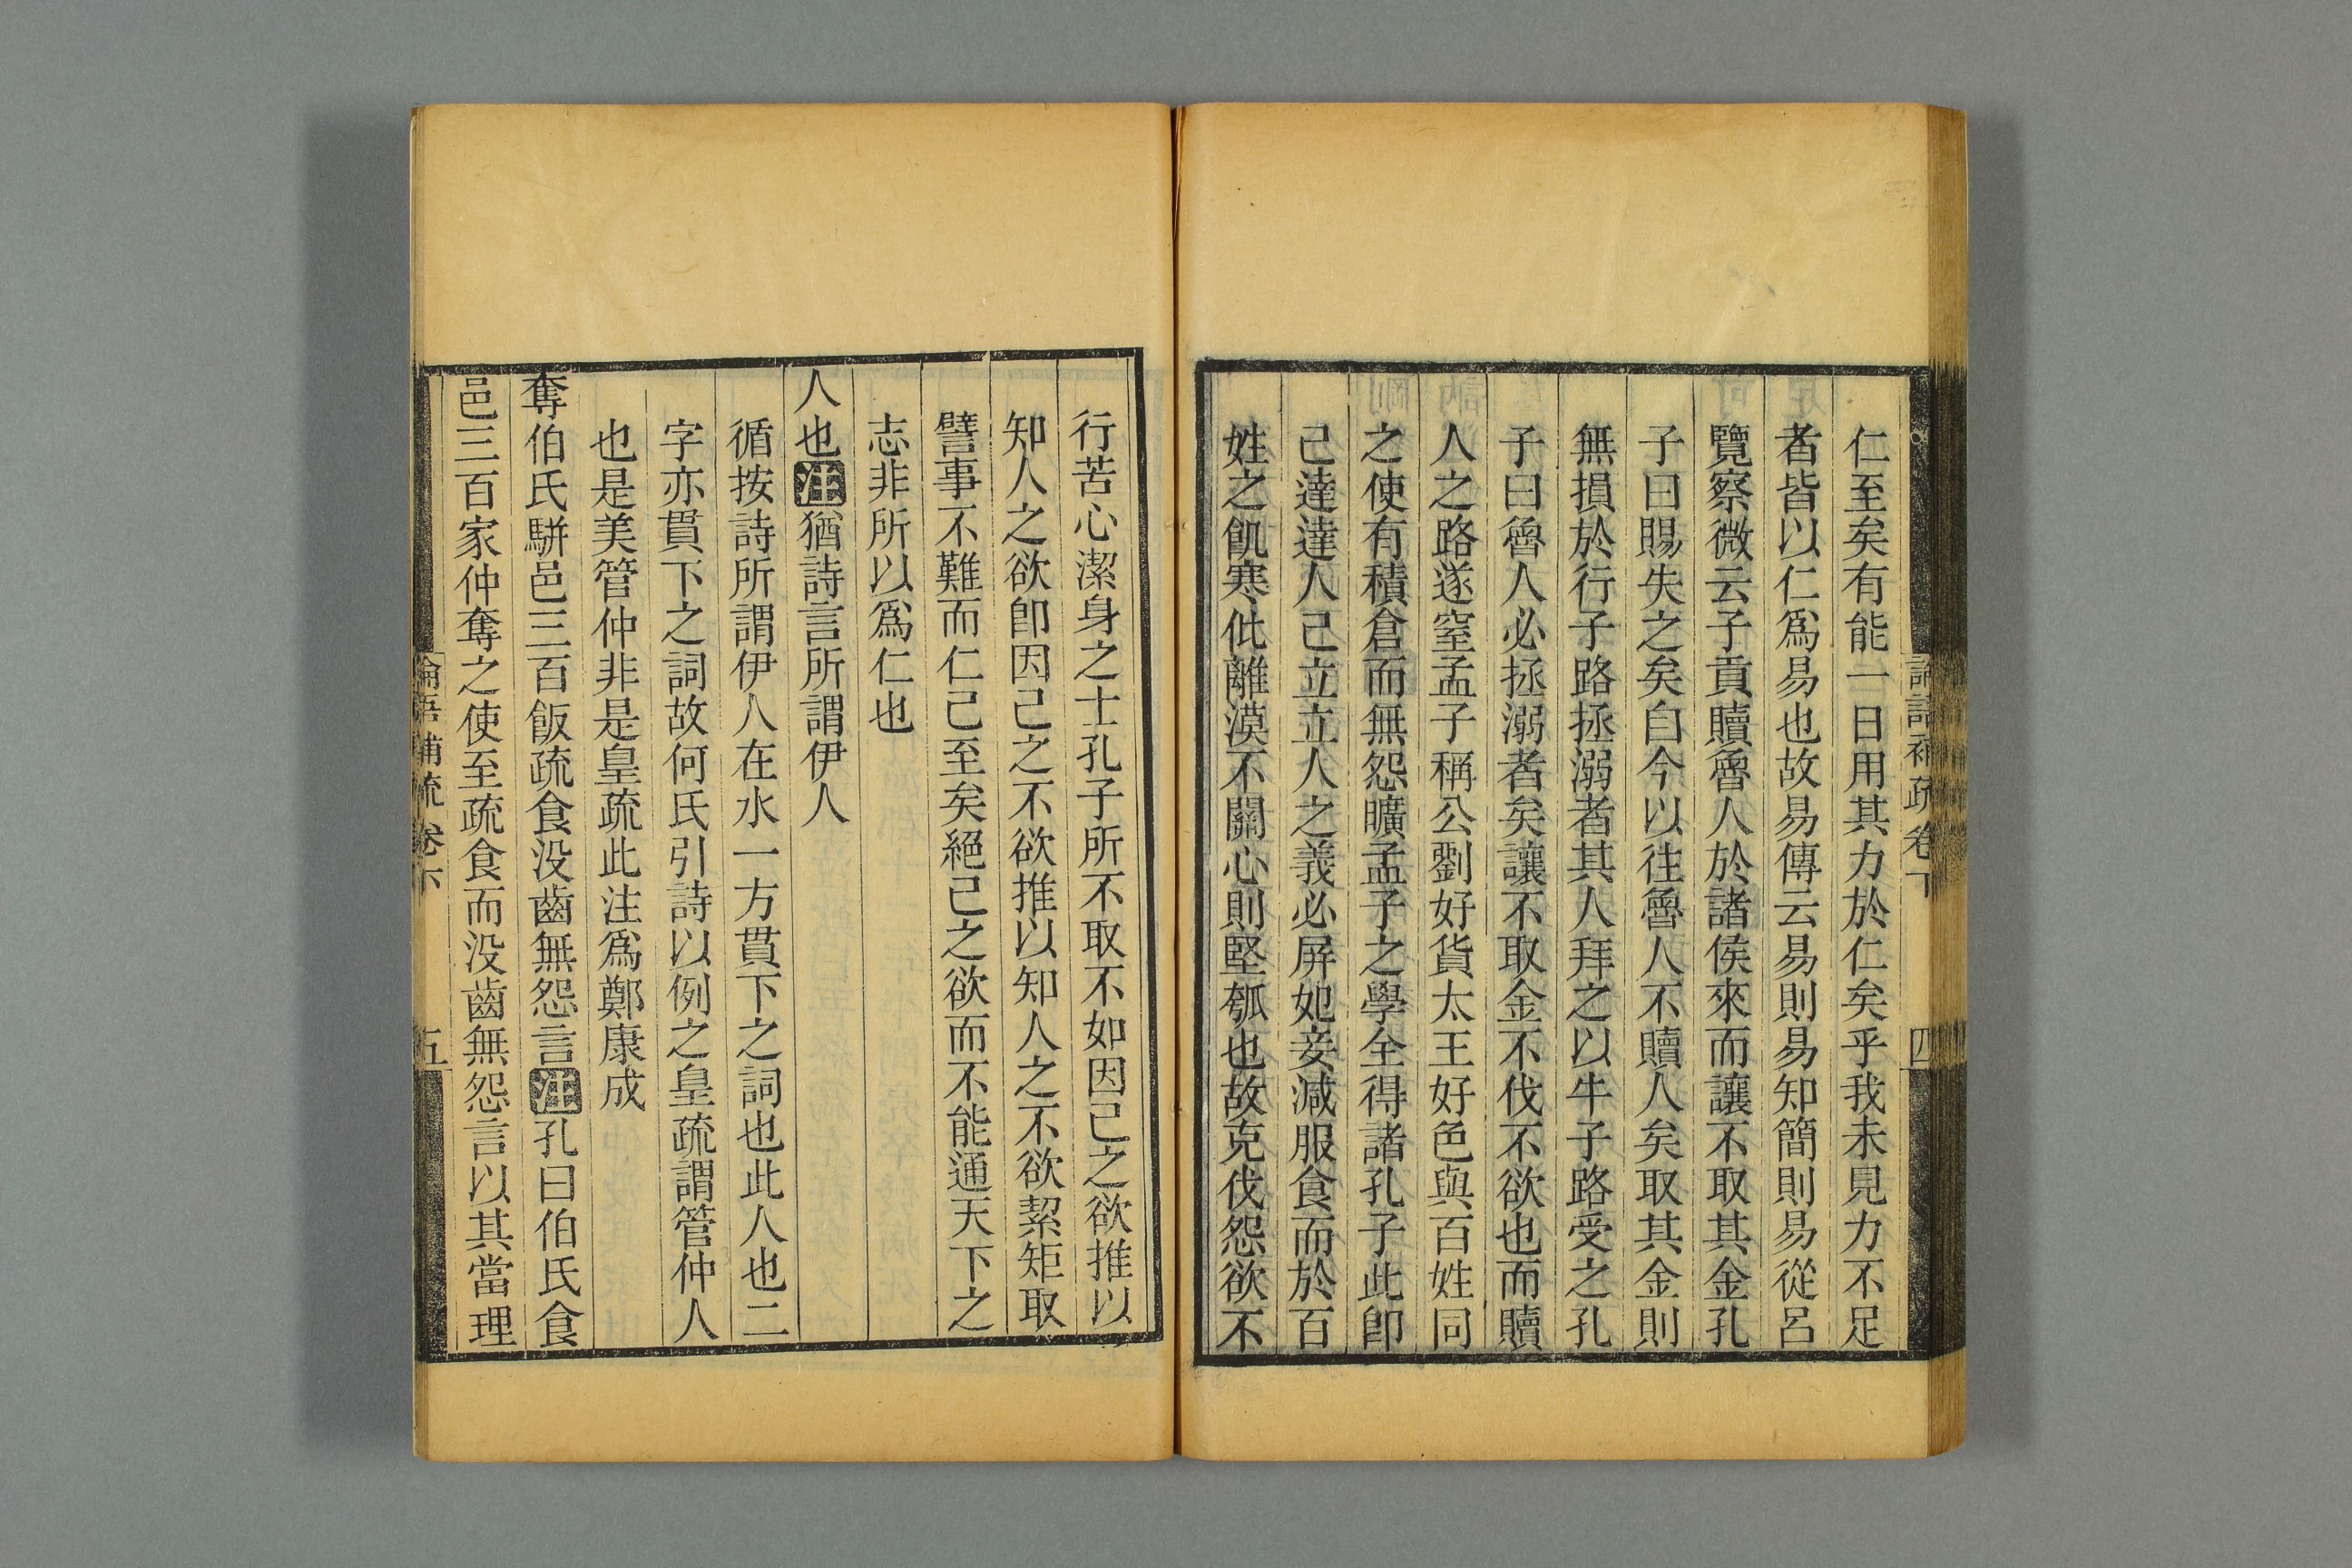 論語補疏卷下
四
仁至矣有能一日用其力於仁矣乎我未見力不足
者皆以仁爲易也故易傳云易則易知簡則易從呂
覽察微云子貢贖魯人於諸侯來而讓不取其金孔
子曰賜失之矣自今以往魯人不贖人矣取其金則
無損於行子路拯溺者其人拜之以牛子路受之孔
子曰魯人必拯溺者矣讓不取金不伐不欲也而贖
人之路遂窒孟子稱公劉好貨太王好色與百姓同
之使有積倉而無怨曠孟子之學全得諸孔子此卽
己達達人己立立人之義必屏妃妾減服食而於百
姓之飢寒仳離漠不關心則堅瓠也故克伐怨欲不
行苦心潔身之士孔子所不取不如因己之欲推以
知人之欲卽因己之不欲推以知人之不欲絜矩取
譬事不難而仁己至矣絕己之欲而不能通天下之
志非所以爲仁也
人也注猶詩言所謂伊人
循按詩所謂伊人在水一方貫下之詞也此人也二
字亦貫下之詞故何氏引詩以例之皇疏謂管仲人
也是美管仲非是皇疏此注爲鄭康成
奪伯氏駢邑三百飯疏食没齒無怨言注孔曰伯氏食
邑三百家仲奪之使至疏食而没齒無怨言以其當理
論語補疏卷下
五